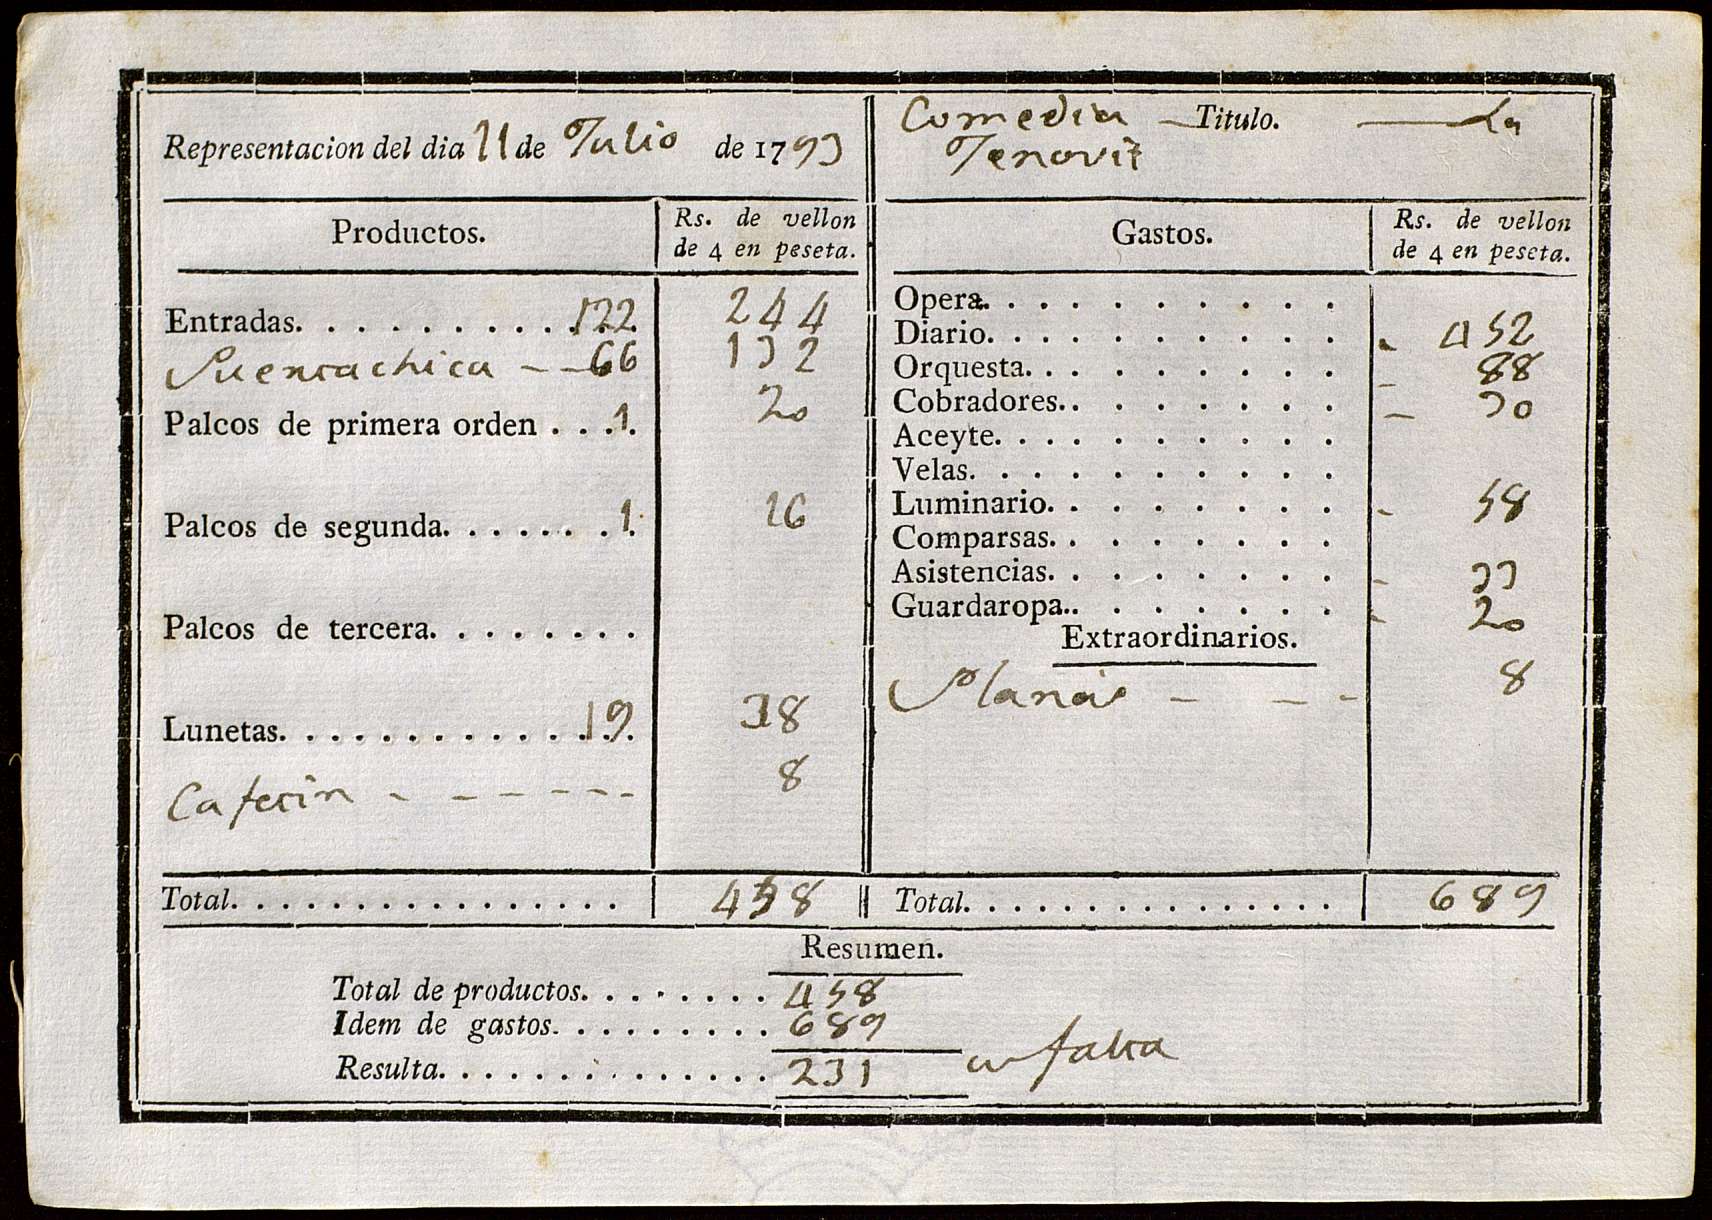 Representacion del dia 11 de Julio de 1793
Comedia Titulo. La
Jenovit
Productos. Rs. de vellon
de 4 en peseta.
Entradas. 122 244
Puertachica 66 132
Palcos de primera orden 1. 20
Palcos de segunda. 1. 16
Palcos de tercera.
Lunetas. 19 38
Cafetin 8
Total. 458
Gastos. Rs. de vellon
de 4 en peseta.
Opera.
Diario. 452
Orquesta. 88
Cobradores. 30
Aceyte.
Velas.
Luminario. 58
Comparsas.
Asistencias. 33
Guardaropa. 20
Extraordinarios.
8
Total. 689
Resumen.
Total de productos. 458
Idem de gastos. 689
Resulta. 231 falta